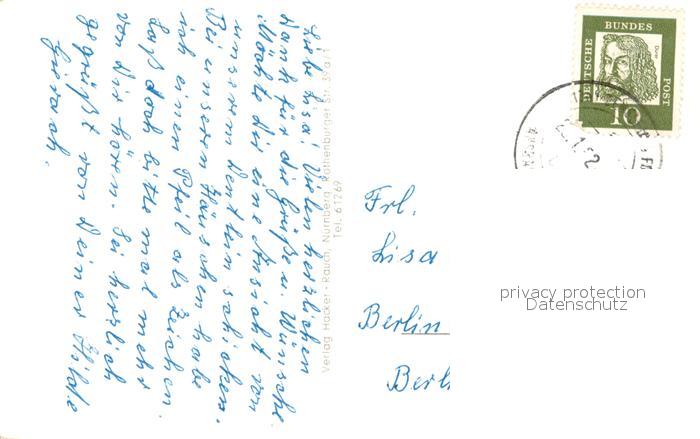 Liebe Lisa! Vielen herzlichen
Dank für die Grüße u. Wünsche.
Möchte dir eine Ansicht von
unserem Dentlein schicken.
Bei unserem Häuschen habe
ich einen Pfeil als Zeichen.
Laß doch bitte mal mehr
von dir hören. Sei herzlich
gegrüßt von Deiner Hilde
Verlag Hacker - Rauch, Nürnberg, Rothenburger Str. 39 a/1
Tel. 61269
DEUTSCHE BUNDES POST
Dürer
10
Frl.
Lisa
Berlin
Berl
privacy protection
Datenschutz